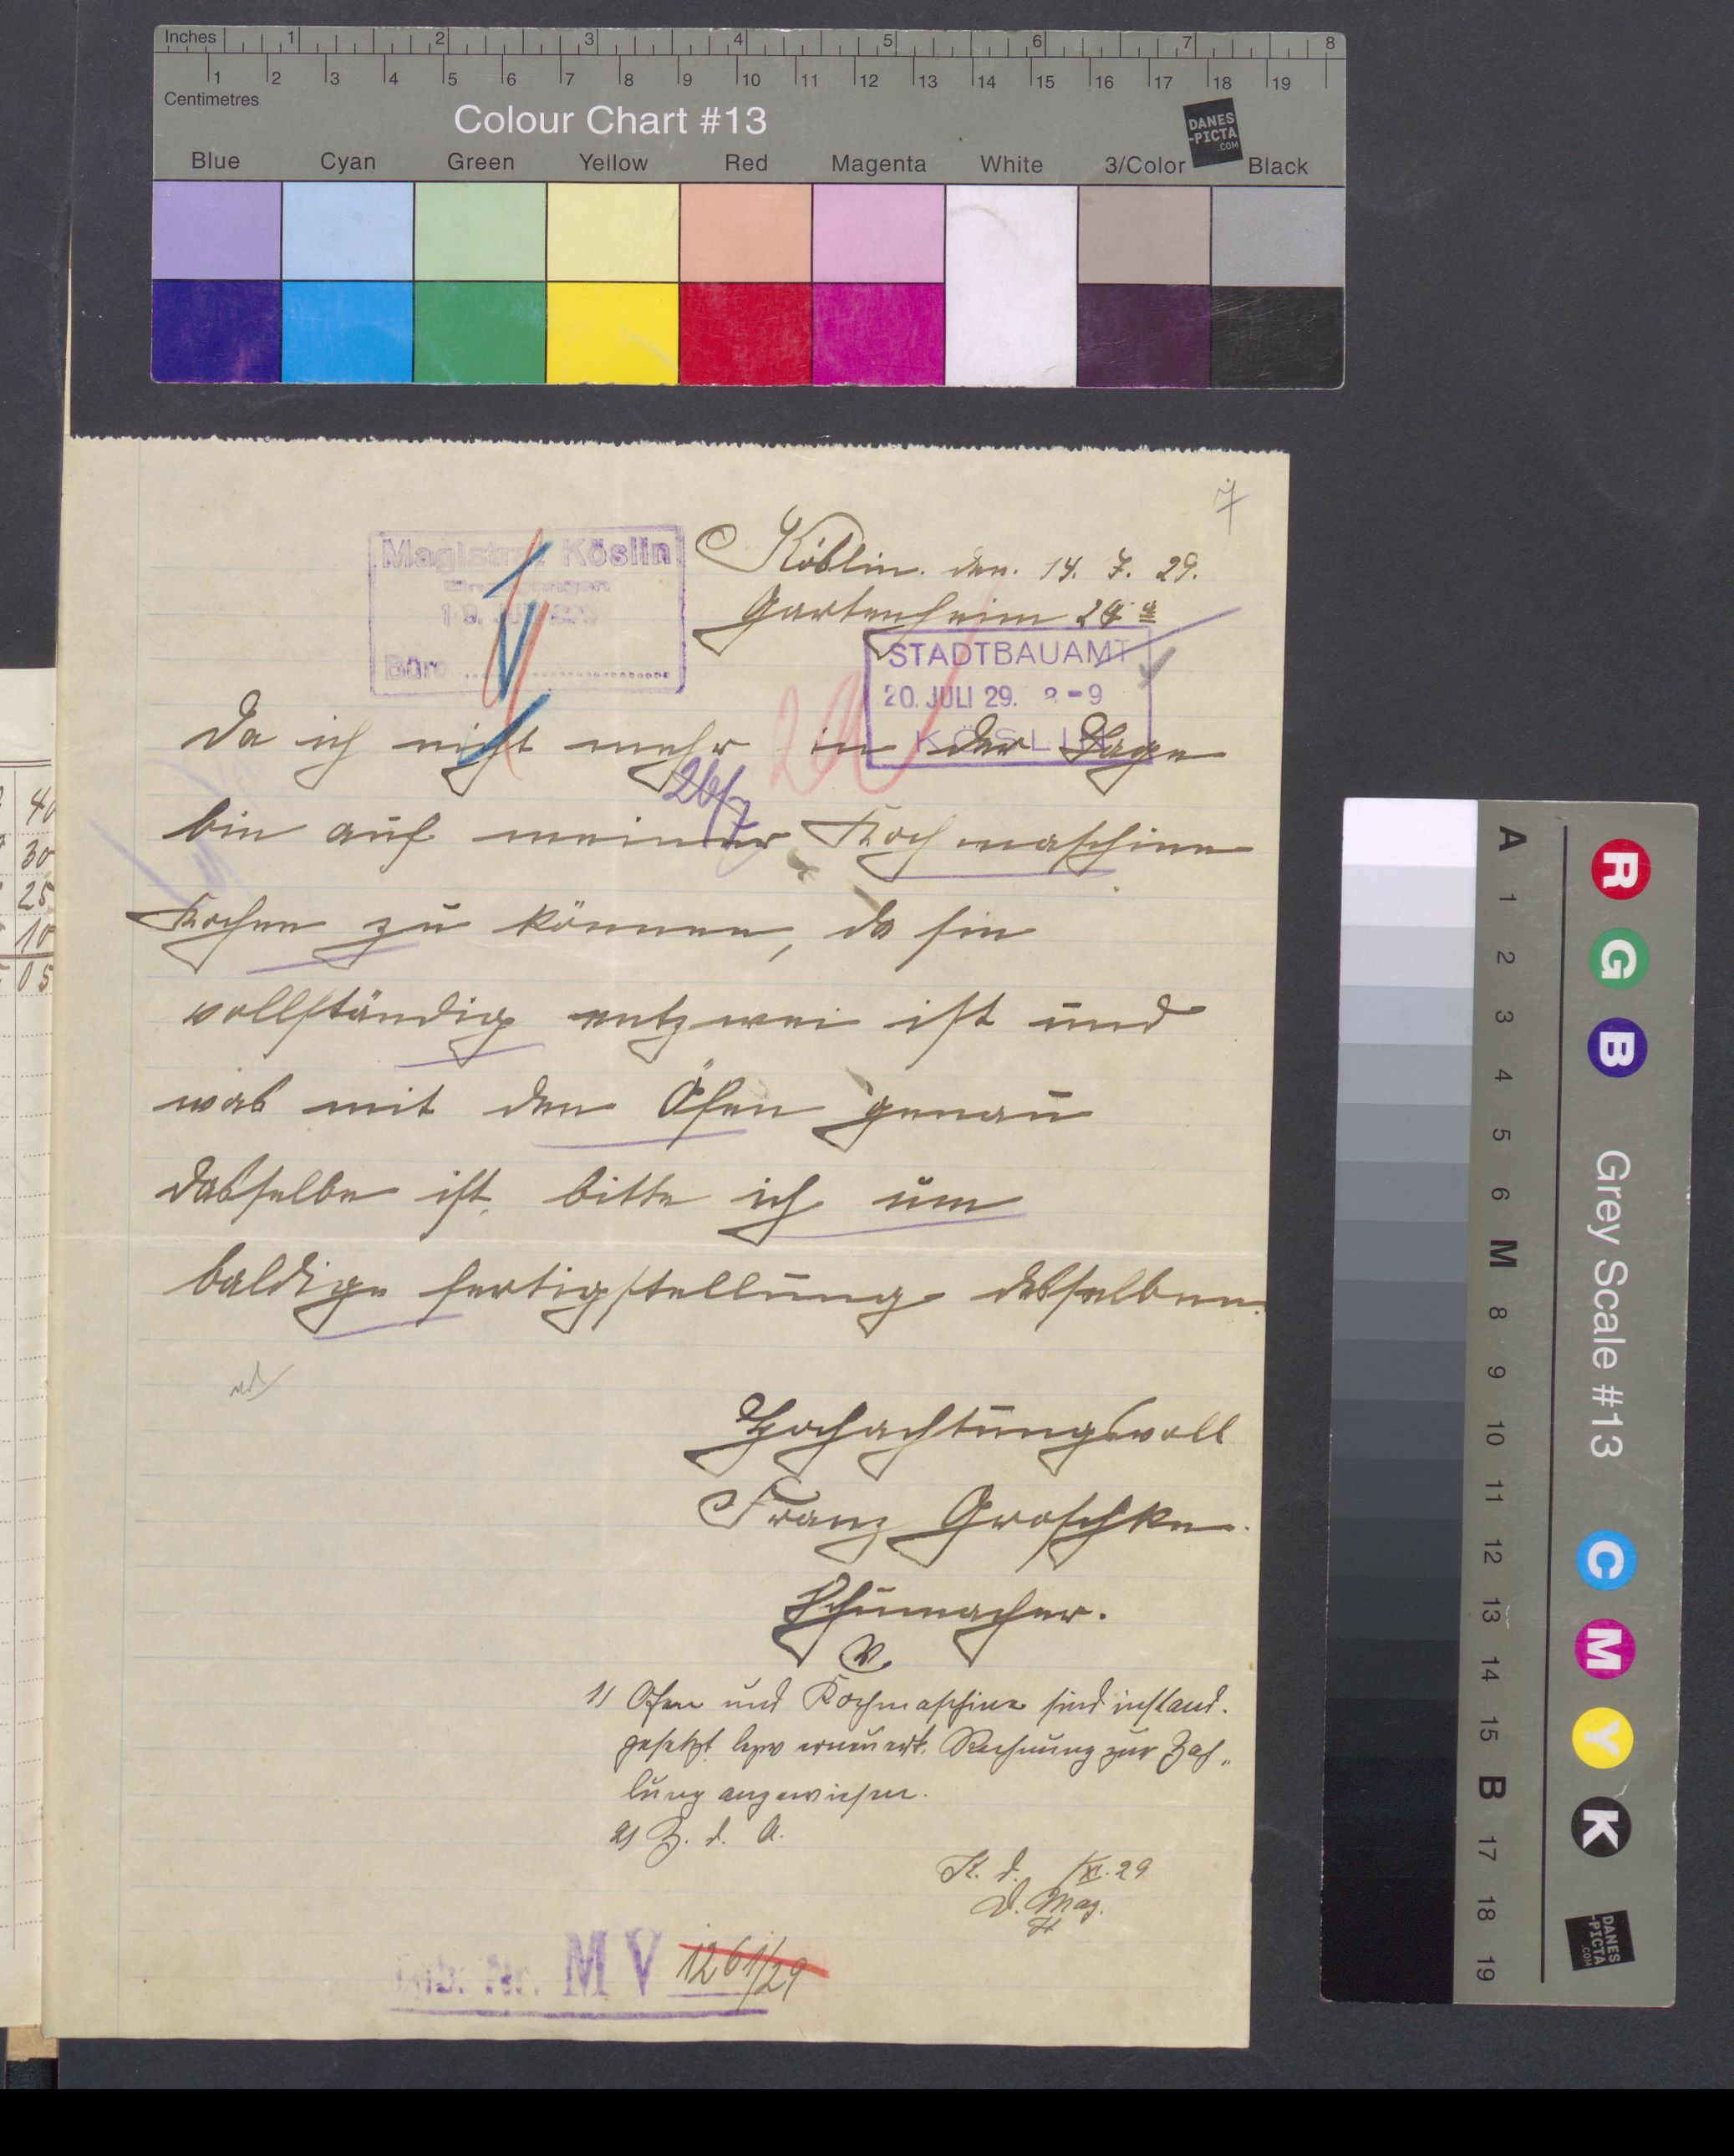 Inches 1 2 3 4 5 6 7 8
1 2 3 4 5 6 7 8 9 10 11 12 13 14 15 16 17 18 19
Centimetres
Colour Chart #13
DANES
-PICTA
.COM
Blue Cyan Green Yellow Red Magenta White 3/Color Black
7
Magistrat Köslin
Büro
Köslin. den. 14. 7. 29.
Gartenheim 24 a
STADTBAUAMT
20. JULI 29. 8-9
KÖSLIN
Da ich nicht mehr in der Lage
26/7
bin auf meiner Kochmaschine
Kochen zu können, da sie
vollständig entzwei ist und
was mit den Öfen genau
dasselbe ist, bitte ich um
baldige fertigstellung desselben.
Hochachtungsvoll
Franz Groschke.
Schumacher.
V.
1) Ofen und Kochmaschine sind instand.
gesetzt bzw erneuert. Rechnung zur Zah-
lung angewiesen.
2) Z. d. A.
K. d. /XI. 29
D. Mag.
Nr. M V 1261/29
40
30
25
10
05
A 1 2 3 4 5 6 M 8 9 10 11 12 13 14 15 B 17 18 19
R G B Grey Scale #13 C M Y K
DANES
-PICTA
.COM